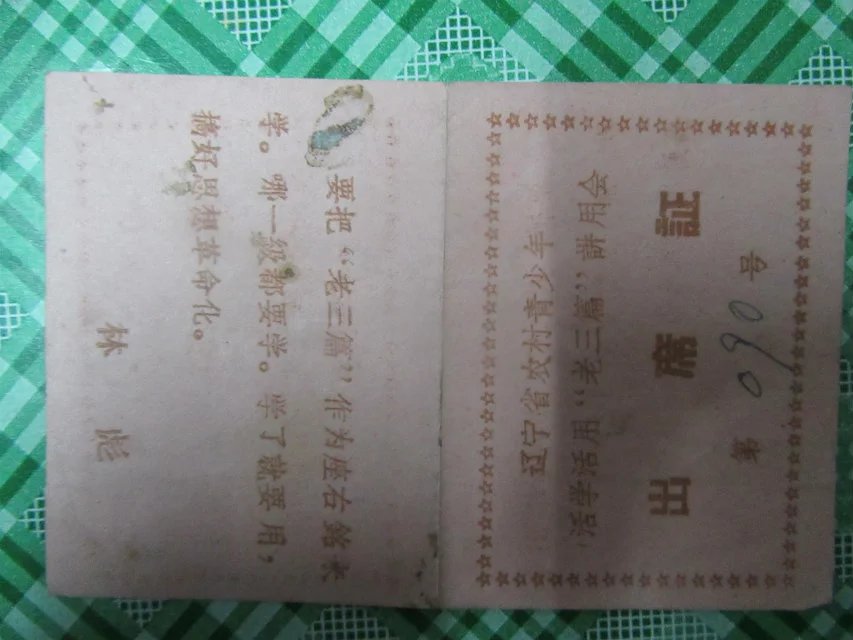 辽宁省农村青少年
活学活用“老三篇”讲用会
出席証
第 090 号
要把“老三篇”作为座右銘来
学。哪一级都要学。学了就要用，
搞好思想革命化。
林彪